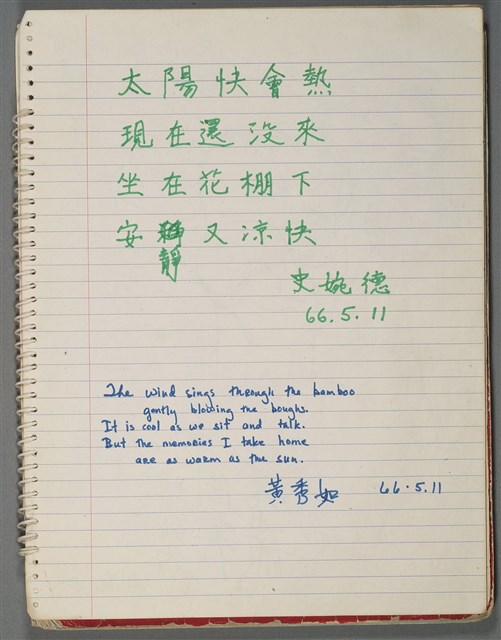 太陽快會熱
現在還没來
坐在花棚下
安靜又凉快
史婉德
66.5.11
The wind sings through the bamboo
gently blowing the boughs.
It is cool as we sit and talk.
But the memories I take home
are as warm as the sun.
黃秀如 66.5.11